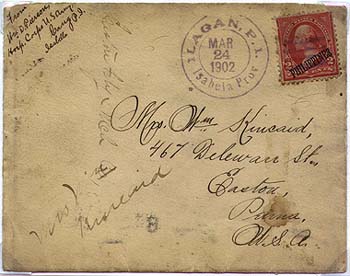 From
Wm D. Pierson
Hosp. Corps U.S. Army
P.I.
ILAGAN, P.I.
MAR
24
1902
Isabela Prov.
PHILIPPINES
Mrs. Wm Kincaid,
467 Delewan St.,
Easton,
Penna,
U.S.A.
Mrs
Kincaid